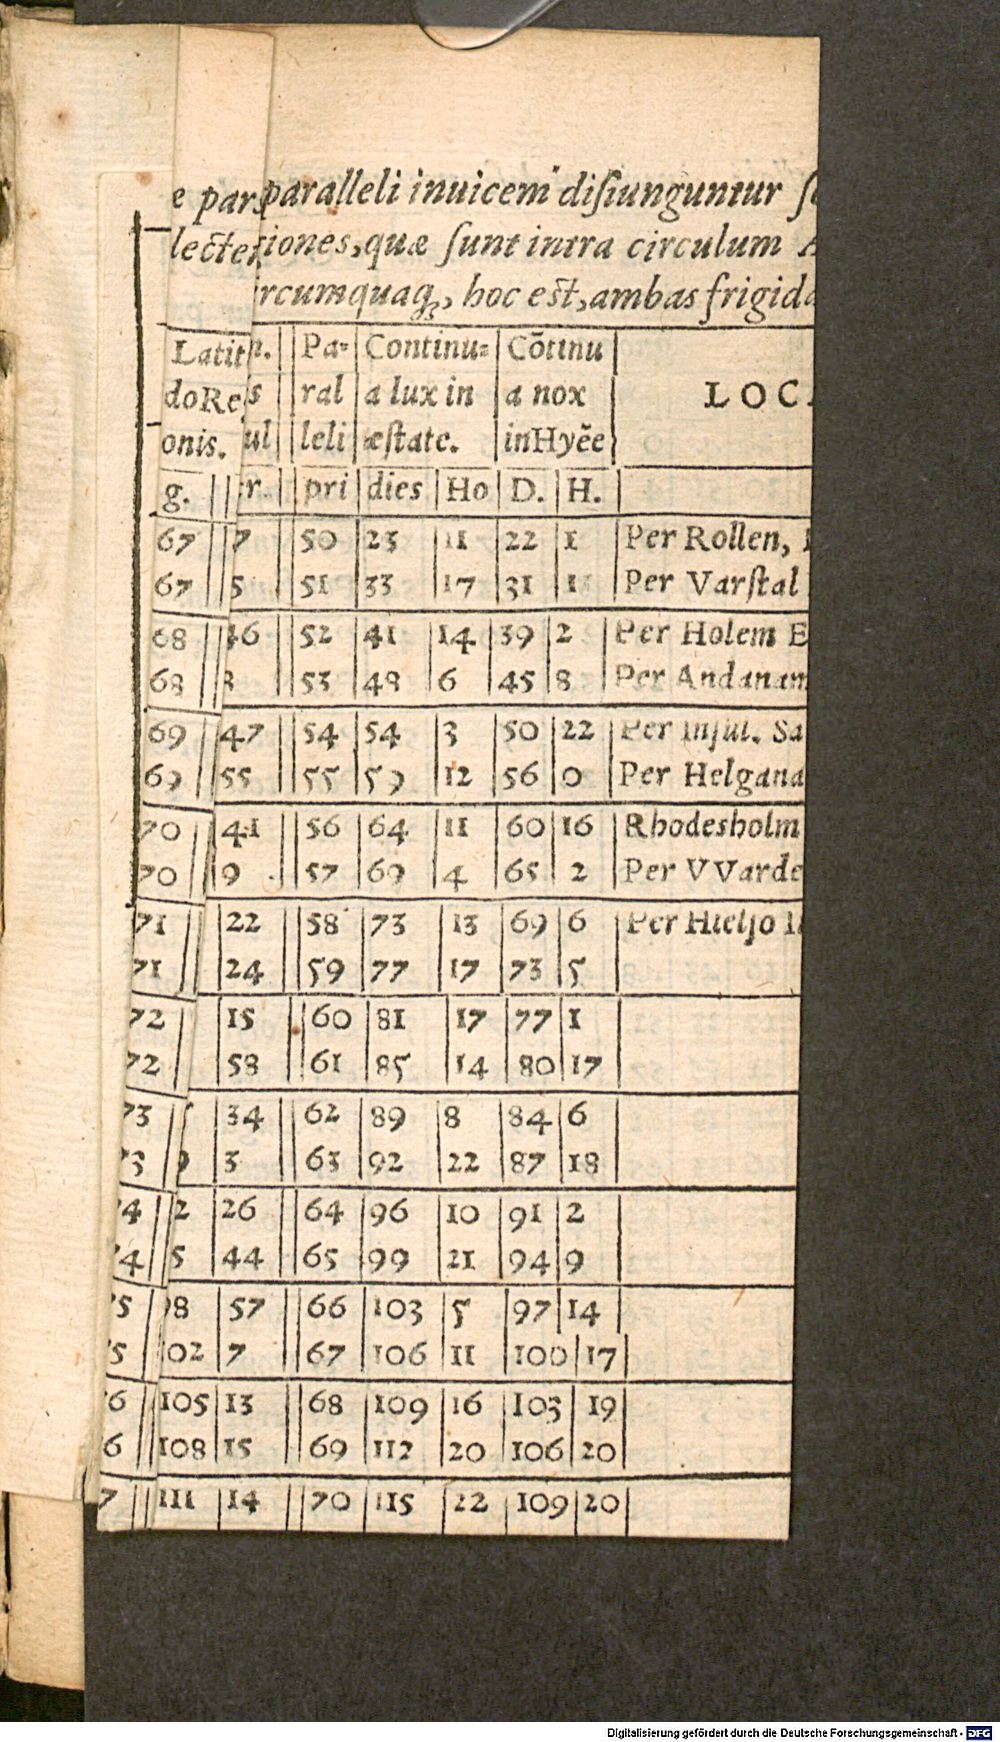 e par paralleli inuicem disiunguntur
lectes iones, quæ sunt intra circulum
ircumquaq;, hoc est, ambas frigida
Latit Pa= Continu= Cōtinu
doRe s ral a lux in a nox LOC
onis. ul leli æstate. inHyēe
g. r. pri dies Ho D. H.
67 7 50 23 11 22 1 Per Rollen,
67 5 51 33 17 31 1 Per Varstal
68 46 52 41 14 39 2 Per Holem E
68 8 53 48 6 45 8 Per Andanam
69 47 54 54 3 50 22 Per Insul. Sa
69 55 55 59 12 56 0 Per Helgana
70 41 56 64 11 60 16 Rhodesholm
70 9 57 69 4 65 2 Per VVarde
71 22 58 73 13 69 6 Per Hielso
71 24 59 77 17 73 5
72 15 60 81 17 77 1
72 58 61 85 14 80 17
73 34 62 89 8 84 6
3 3 63 92 22 87 18
4 2 26 64 96 10 91 2
4 5 44 65 99 21 94 9
5 98 57 66 103 5 97 14
5 02 7 67 106 11 100 17
6 105 13 68 109 16 103 19
6 108 15 69 112 20 106 20
7 111 14 70 115 22 109 20
Digitalisierung gefördert durch die Deutsche Forschungsgemeinschaft - DFG